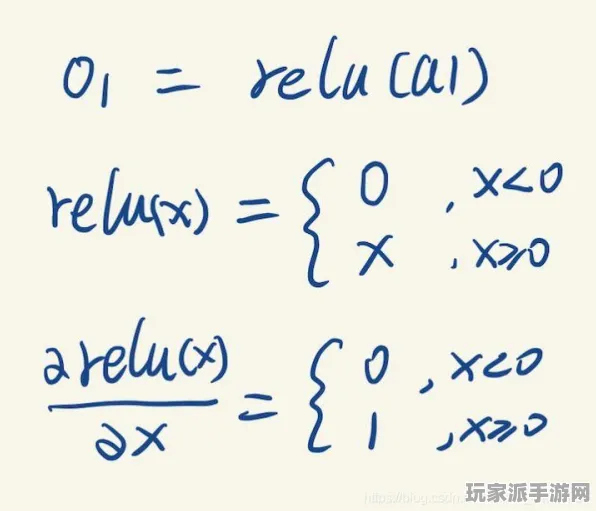 o₁ = relu(a1)
relu(x) = { 0 , x<0
x , x≥0
∂relu(x)/∂x = { 0 , x<0
1 , x≥0
https://blog.csdn
玩家派手游网